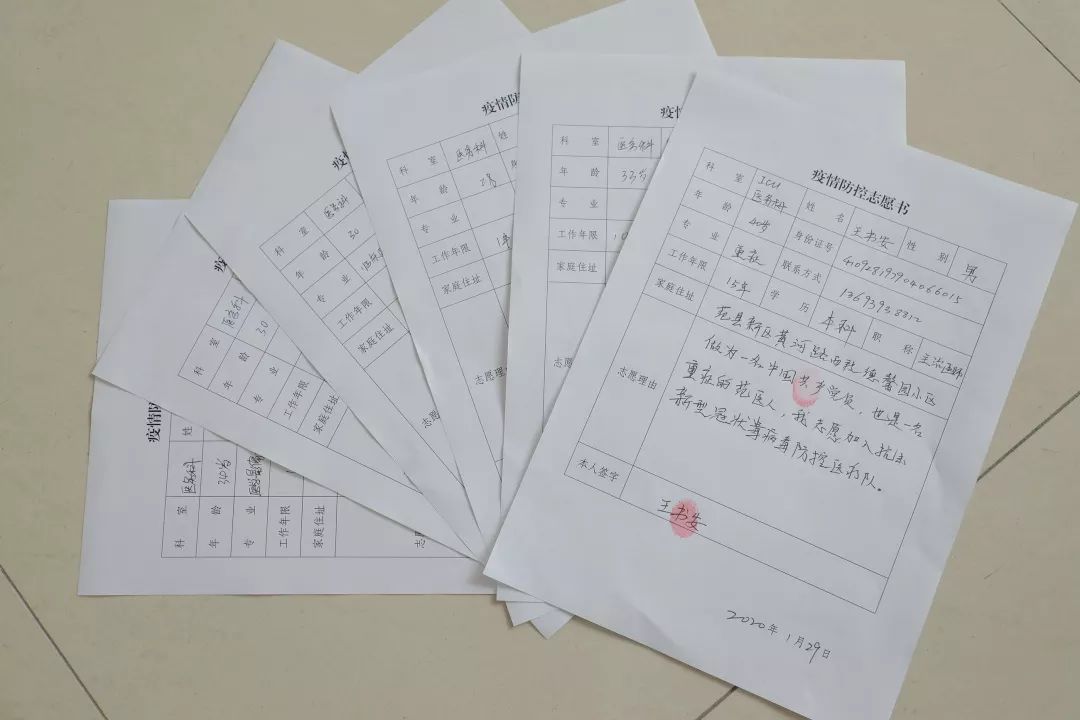 疫情防控志愿书
科 室 ICU 医务科 姓 名 王书安 性 别 男
年 龄 40岁 身份证号 410928197904066015
专 业 重症 联系方式 13693938312
工作年限 15年 学 历 本科 职 称 主治医师
家庭住址 范县新区黄河路西段德馨园小区
志愿理由
做为一名中国共产党员,也是一名
重症的范医人,我志愿加入抗击
新型冠状毒病毒防控医疗队。
本人签字 王书安
2020年1月29日
疫情
科 室 医务科
年 龄 33岁
专 业
工作年限
家庭住址
志愿理由
疫情防
科 室 医务科 姓
年 龄
专 业
工作年限
家庭住址
志愿理由
疫
科 室 医务科
年 龄 30
专 业
工作年限
家庭住址
志愿
科 室 医务科
年 龄 30
专
工作年限
家庭住址
疫情防
科 室 医务科 姓
年 龄 34岁
专 业
工作年限
家庭住址
志